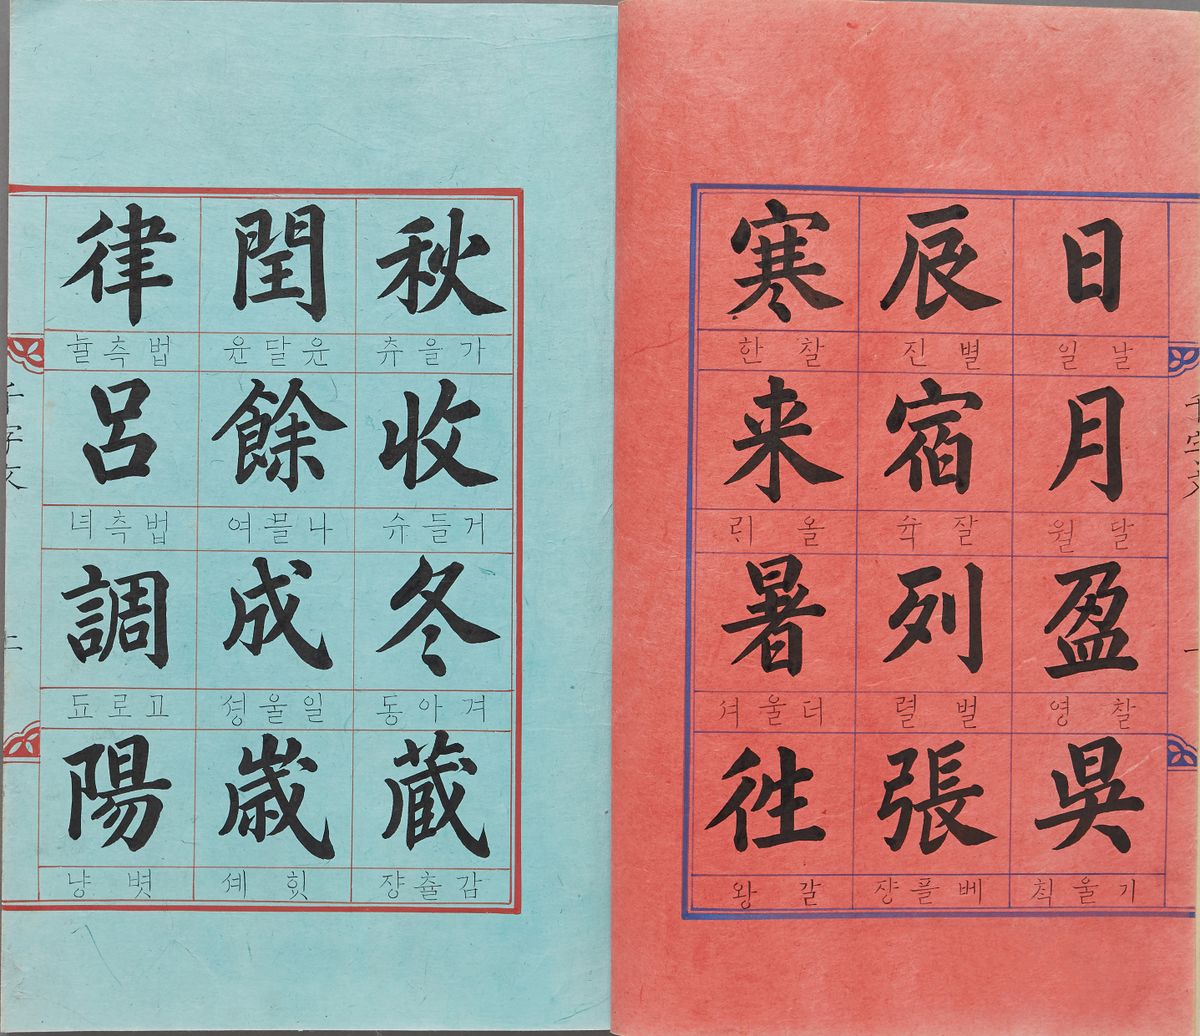 千字文
日
날 일
月
달 월
盈
찰 영
吳
기울 칙
辰
별 진
宿
잘 슉
列
벌 렬
張
베플 쟝
寒
찰 한
来
올 리
暑
더울 셔
徃
갈 왕
秋
가을 츄
收
거들 슈
冬
겨아 동
蔵
감츌 쟝
閏
윤달 윤
餘
나믈 여
成
일울 셩
歳
힛 셰
律
법측 뉼
呂
법측 녀
調
고로 됴
陽
볏 냥
千字文